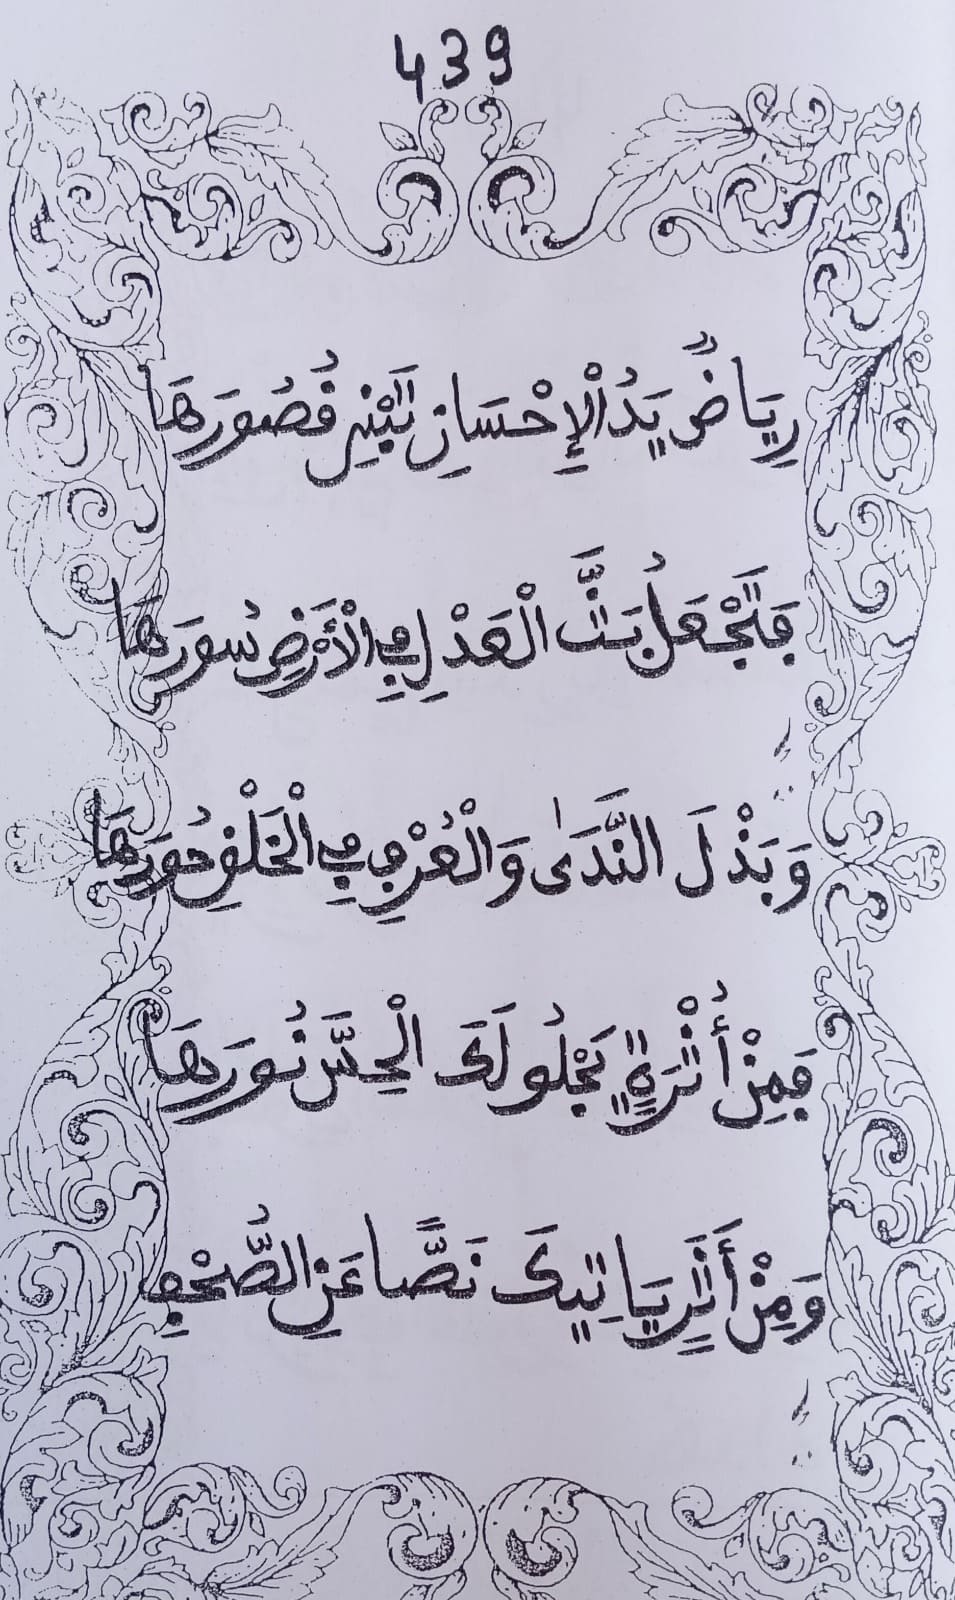 439
رِيَاضٌ يَدُ الْإِحْسَانِ تَبْنِي قُصُورَهَا
فَتَجْعَلُ بَثَّ الْعَدْلِ فِي الْأَرْضِ سُورَهَا
وَبَذْلَ النَّدَىٰ وَالْعُرْفِ فِي الْخَلْقِ حُورَهَا
فَمِنْ أُثْرَةٍ يَجْلُو لَكَ الْحِسَّ نُورَهَا
وَمِنْ أَثَرٍ يَاتِيكَ نَصًّا عَنِ الصُّحْفِ